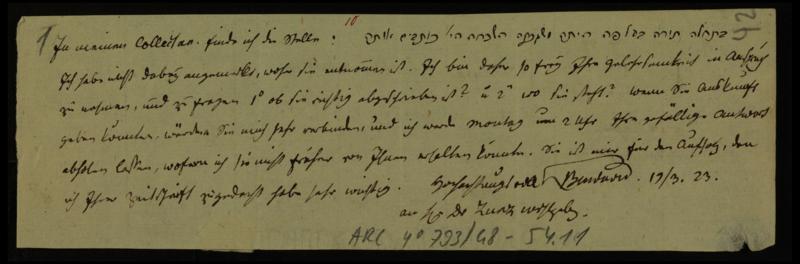 10
1 In meinen Collectan. finde ich die Stelle : בתחלה תורה בעל פה היתה והלכה היו כותבים אותה 42
Ich habe nicht dabey angemerkt, woher sie entnommen ist. Ich bin daher so frey Ihre Gelehrsamkeit in Anspruch
zu nehmen, und zu fragen 1° ob sie richtig abgeschrieben ist? u 2° wo sie steht? Wenn Sie Auskunft
geben könnten, würden Sie mich sehr verbinden, und ich werde Montag um 2 Uhr Ihre gefällige Antwort
abholen lassen, wofern ich sie nicht früher von Ihnen erhalten könnte. Sie ist mir für den Aufsatz, den
ich Ihrer Zeitschrift zugedacht habe sehr wichtig. Hochachtungsvoll 19/3. 23.
an H. Dr Zunz
ARC 4° 793/G8 - 54.11